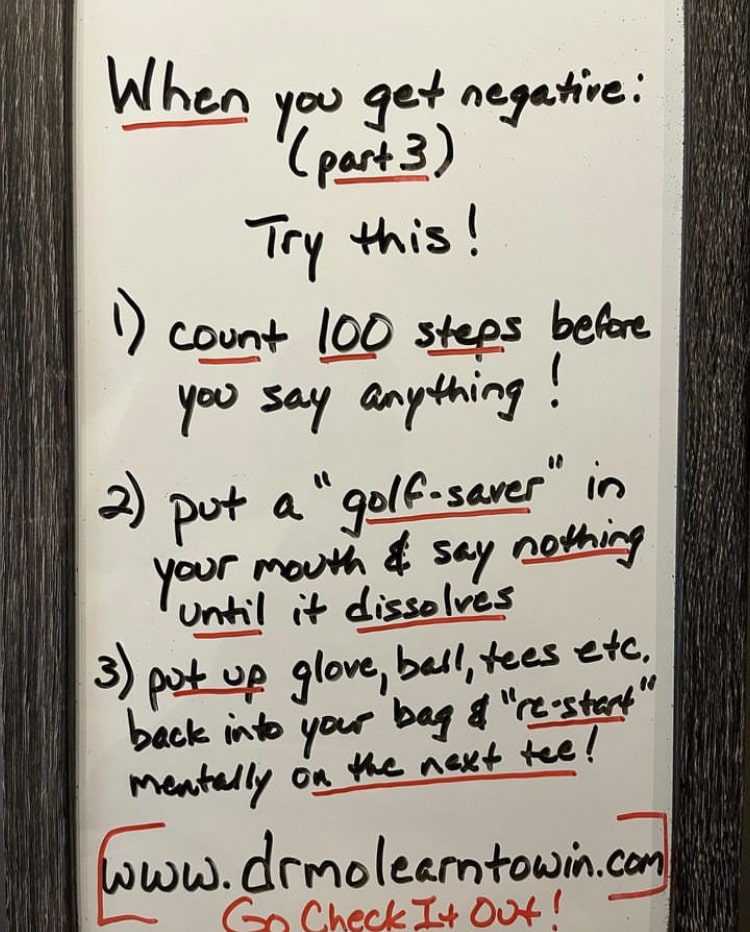 When you get negative:
(part 3)
Try this!
1) count 100 steps before
you say anything!
2) put a "golf-saver" in
your mouth & say nothing
until it dissolves
3) put up glove, ball, tees etc.
back into your bag & "re-start"
mentally on the next tee!
www.drmolearntowin.com
Go Check It Out!